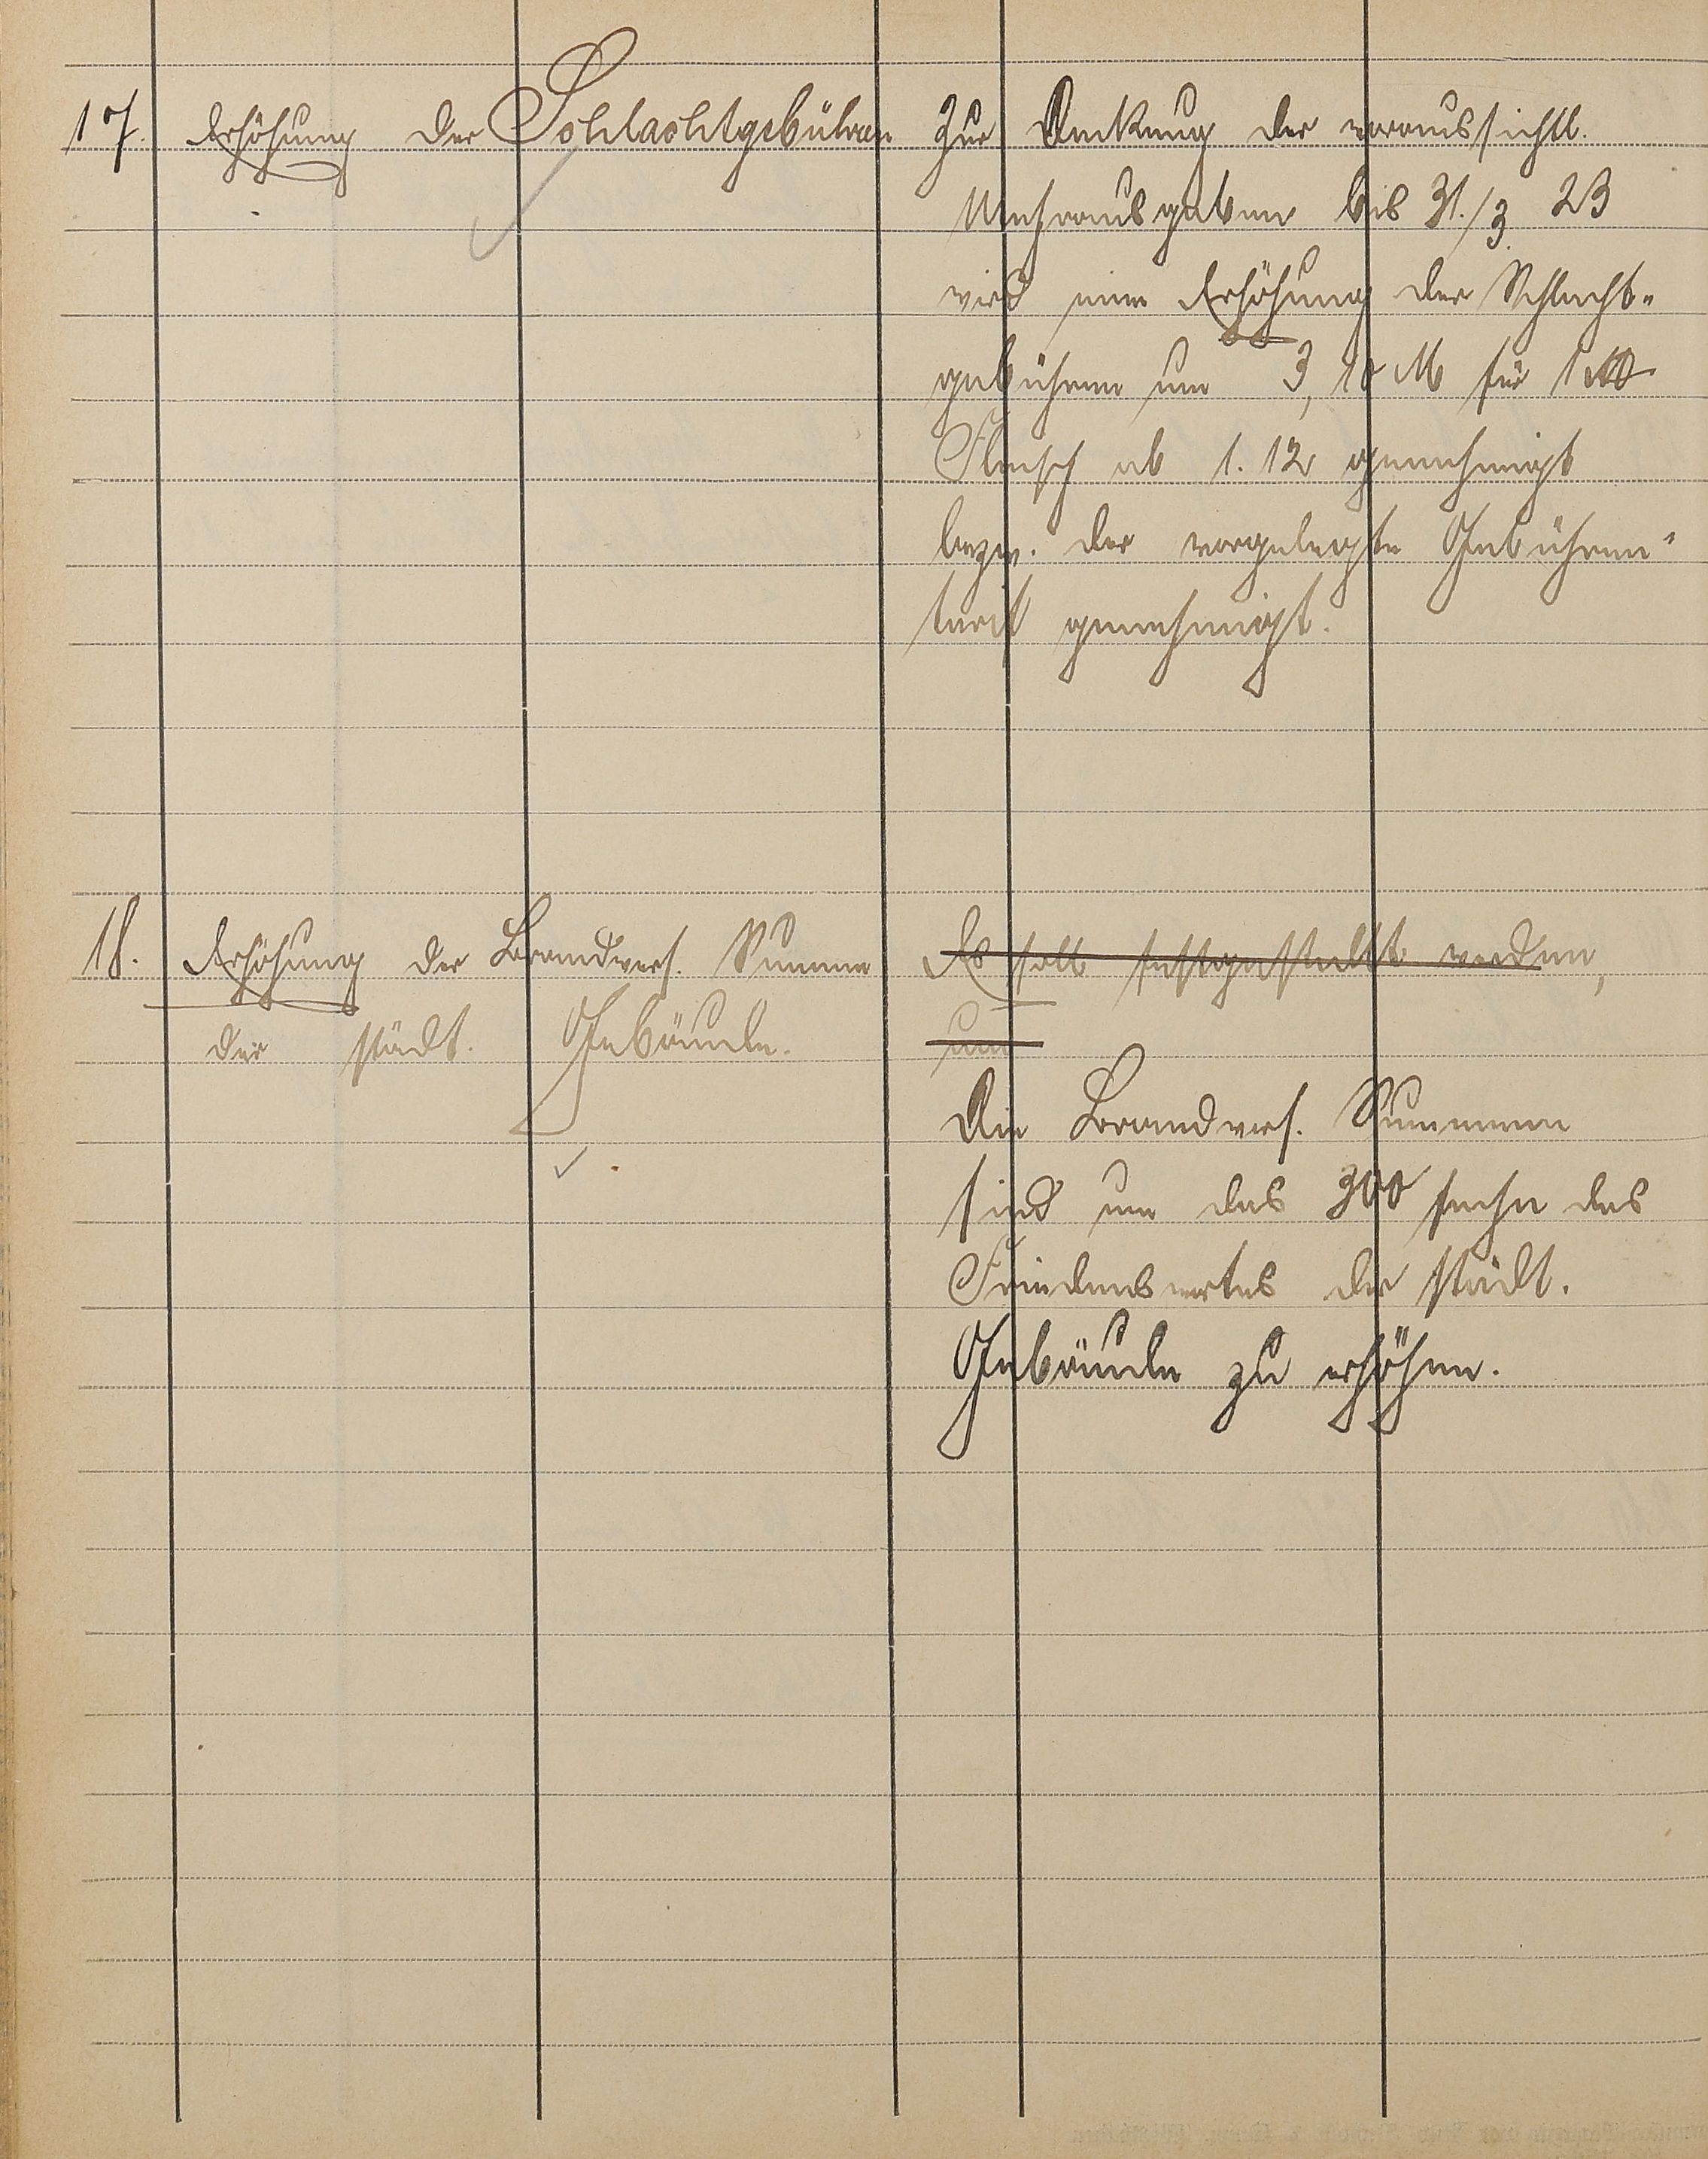 17. Erhöhung der Schlachtgebühren
Zur Deckung der voraussichtl.
Mehrausgaben bis 31./3. 23
wird eine Erhöhung der Schlacht-
gebühren um 3,10 M für 1 ℔
Fleisch ab 1. 12 genehmigt
bezw. der vorgelegte Gebühren-
tarif genehmigt.
18. Erhöhung der Brandvers. Summe
der städt. Gebäude.
Es soll festgestellt werden,
um
Die Brandvers. Summen
sind um das 300 fache des
Friedenswertes der städt.
Gebäude zu erhöhen.